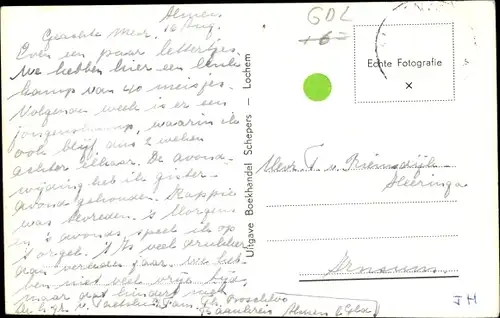 Almen,
16 Aug.
Geachte Mevr,
Even een paar lettertjes.
We hebben hier een leuk
kamp van 40 meisjes.
Volgende week is er een
jongenskamp, waarin ik
ook blijf dus 2 weken
achter elkaar. De avond-
wijding heb ik gister-
avond gehouden.
was tevreden. 's Morgens
en 's avonds speel ik op
't orgel. 't Is veel drukker
dan verleden jaar. We heb-
ben niet veel vrije tijd,
maar dat hindert niet.
Almen Gld.
Uitgave Boekhandel Schepers — Lochem
GDL
16
Echte Fotografie
x
Mevr. v. Riemsdijk-
Heeringa
JH